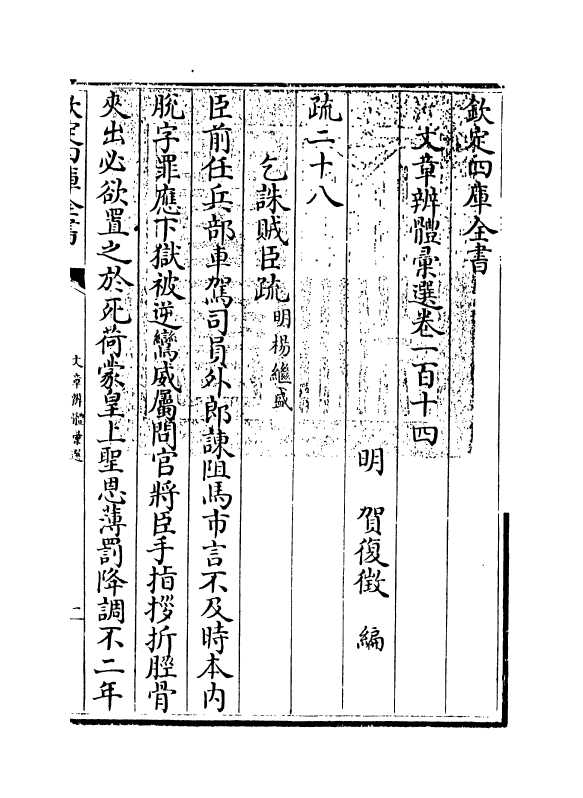 欽定四庫全書
文章辨體彙選卷一百十四
明　賀復徵　編
疏二十八
乞誅賊臣疏 明楊繼盛
臣前任兵部車駕司員外郎諫阻馬市言不及時本内
脱字罪應下獄被逆鸞威屬問官將臣手指拶折脛骨
夾出必欲置之於死荷蒙皇上聖恩薄罰降調不二年
欽定四庫全書
文章辨體彙選